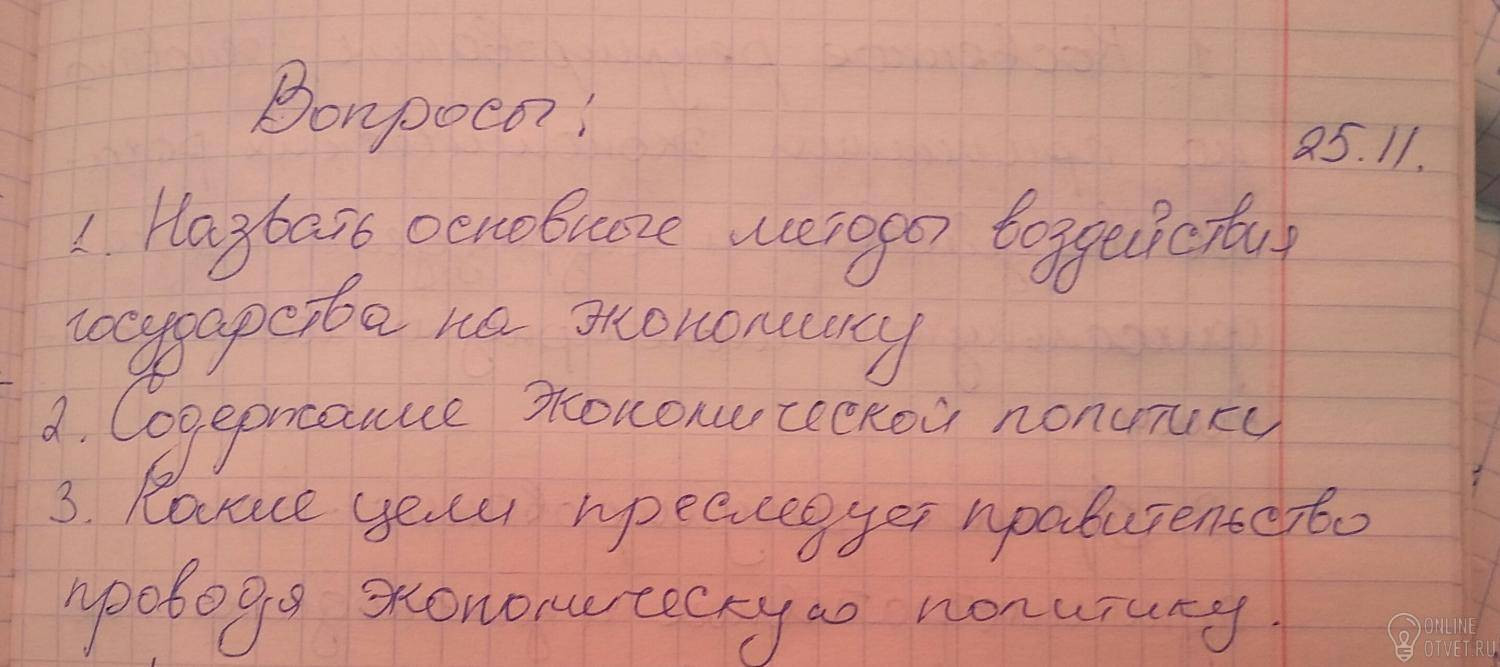 Вопросы:
25.11.
1. Назвать основные методы воздействия
государства на экономику
2. Содержание экономической политики
3. Какие цели преследует правительство
проводя экономическую политику.
ONLINE
OTVET.RU